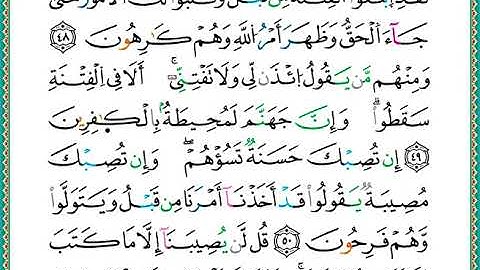 لَقَدِ ابْتَغَوُا الْفِتْنَةَ مِنْ قَبْلُ وَقَلَّبُوا لَكَ الْأُمُورَ حَتَّىٰ
جَآءَ الْحَقُّ وَظَهَرَ اَمْرُ اللّٰهِ وَهُمْ كَارِهُونَ ﴿٤٨﴾
وَمِنْهُمْ مَّنْ يَقُولُ ائْذَنْ لِى وَلَا تَفْتِنِّىۚ اَلَا فِى الْفِتْنَةِ
سَقَطُواۗ وَاِنَّ جَهَنَّمَ لَمُحِيطَةٌۢ بِالْكٰفِرِينَ
﴿٤٩﴾ اِنْ تُصِبْكَ حَسَنَةٌ تَسُؤْهُمْۖ وَاِنْ تُصِبْكَ
مُصِيبَةٌ يَّقُولُوا قَدْ اَخَذْنَآ اَمْرَنَا مِنْ قَبْلُ وَيَتَوَلَّوْا
وَّهُمْ فَرِحُونَ ﴿٥٠﴾ قُلْ لَّنْ يُصِيبَنَآ اِلَّا مَا كَتَبَ